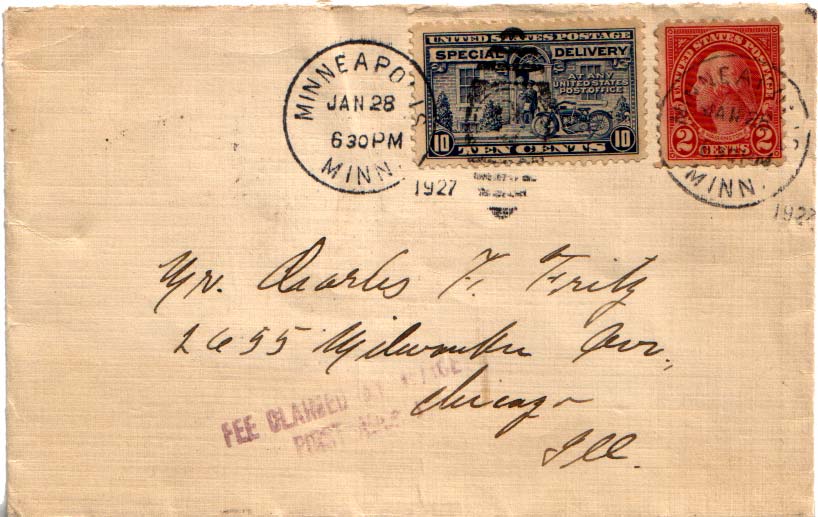 MINNEAPOLIS
JAN 28
6 30 PM
MINN.
1927
UNITED STATES POSTAGE
SPECIAL DELIVERY
AT ANY
UNITED STATES
POST OFFICE
10 TEN CENTS 10
UNITED STATES POSTAGE
2 CENTS 2
MINNEAPOLIS
JAN 28
MINN.
192
Mr. Charles F. Fritz
2655 Milwaukee Ave.,
Chicago
Ill.
FEE CLAIMED
POST